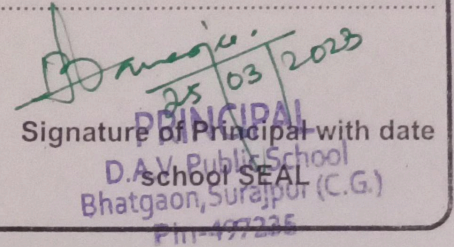 Banerjee.
25/03/2023
PRINCIPAL
Signature of Principal with date
D.A.V. Public School
school SEAL
Bhatgaon, Surajpur (C.G.)
Pin-497235